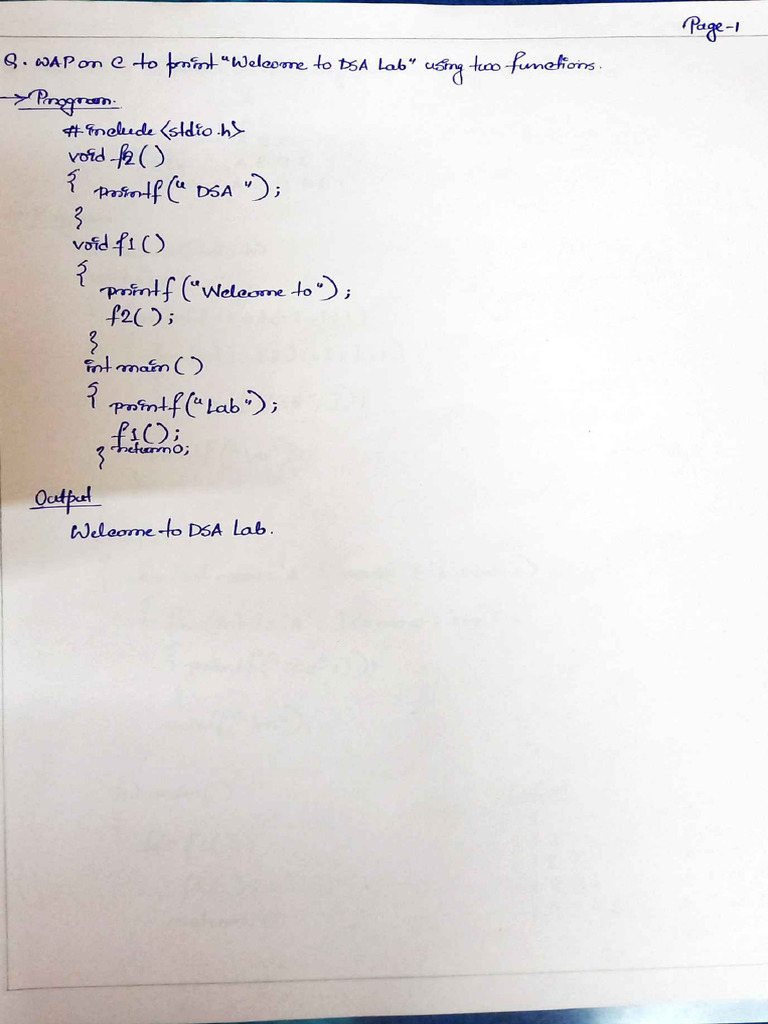 Page-1
Q. WAP on C to print "Welcome to DSA Lab" using two functions.
→ Program.
#include <stdio.h>
void f2()
{ printf(" DSA ");
}
void f1()
{
printf("Welcome to");
f2();
}
int main()
{ printf("Lab");
f1();
} return 0;
Output
Welcome to DSA Lab.